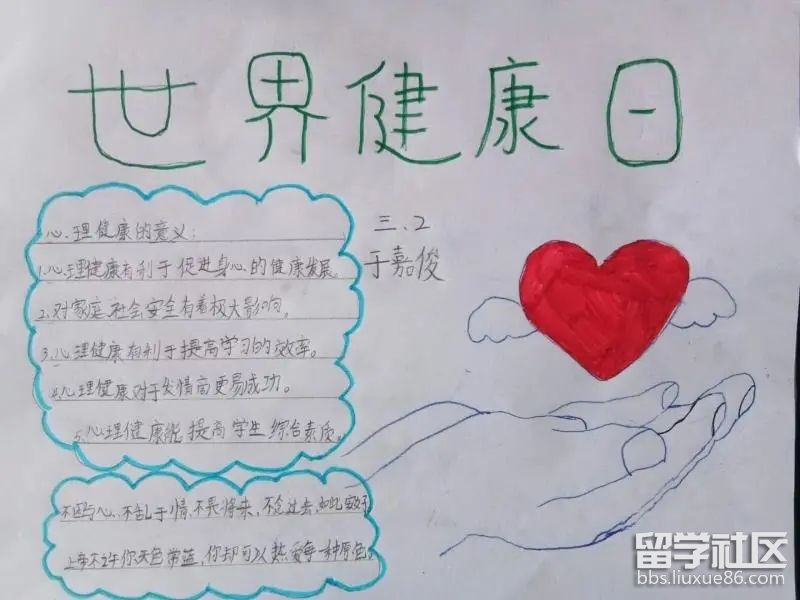 世界健康日
三.2
于嘉俊
心理健康的意义:
1.心理健康有利于促进身心的健康发展。
2.对家庭社会安全有着极大影响。
3.心理健康有利于提高学习的效率。
4.心理健康对于发情商更易成功。
5.心理健康能提高学生综合素质。
不困与心,不乱于情,不畏将来,不念过去,如此安好
上帝不许你天色常蓝,你却可以热爱每一种原色。
留学社区
bbs.liuxue86.com